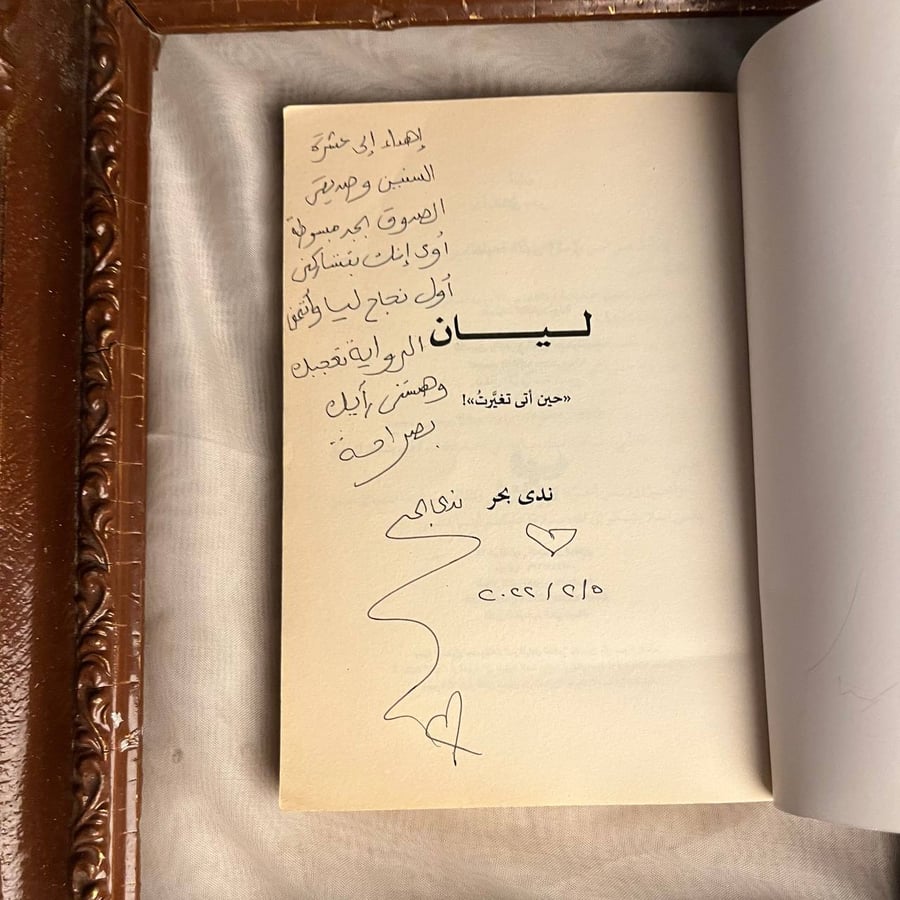 إهداء إلى عشرة
السنين وصديقتي
الصدوق بجد مبسوطة
أوي إنك بتشاركيني
أول نجاح ليا وأتمنى
الرواية تعجبك
وهستنى رأيك
بصراحة
ليان
«حين أتى تغيَّرتُ»!
ندى بحر
ندى بحر
٢٠٢٢/٢/٥